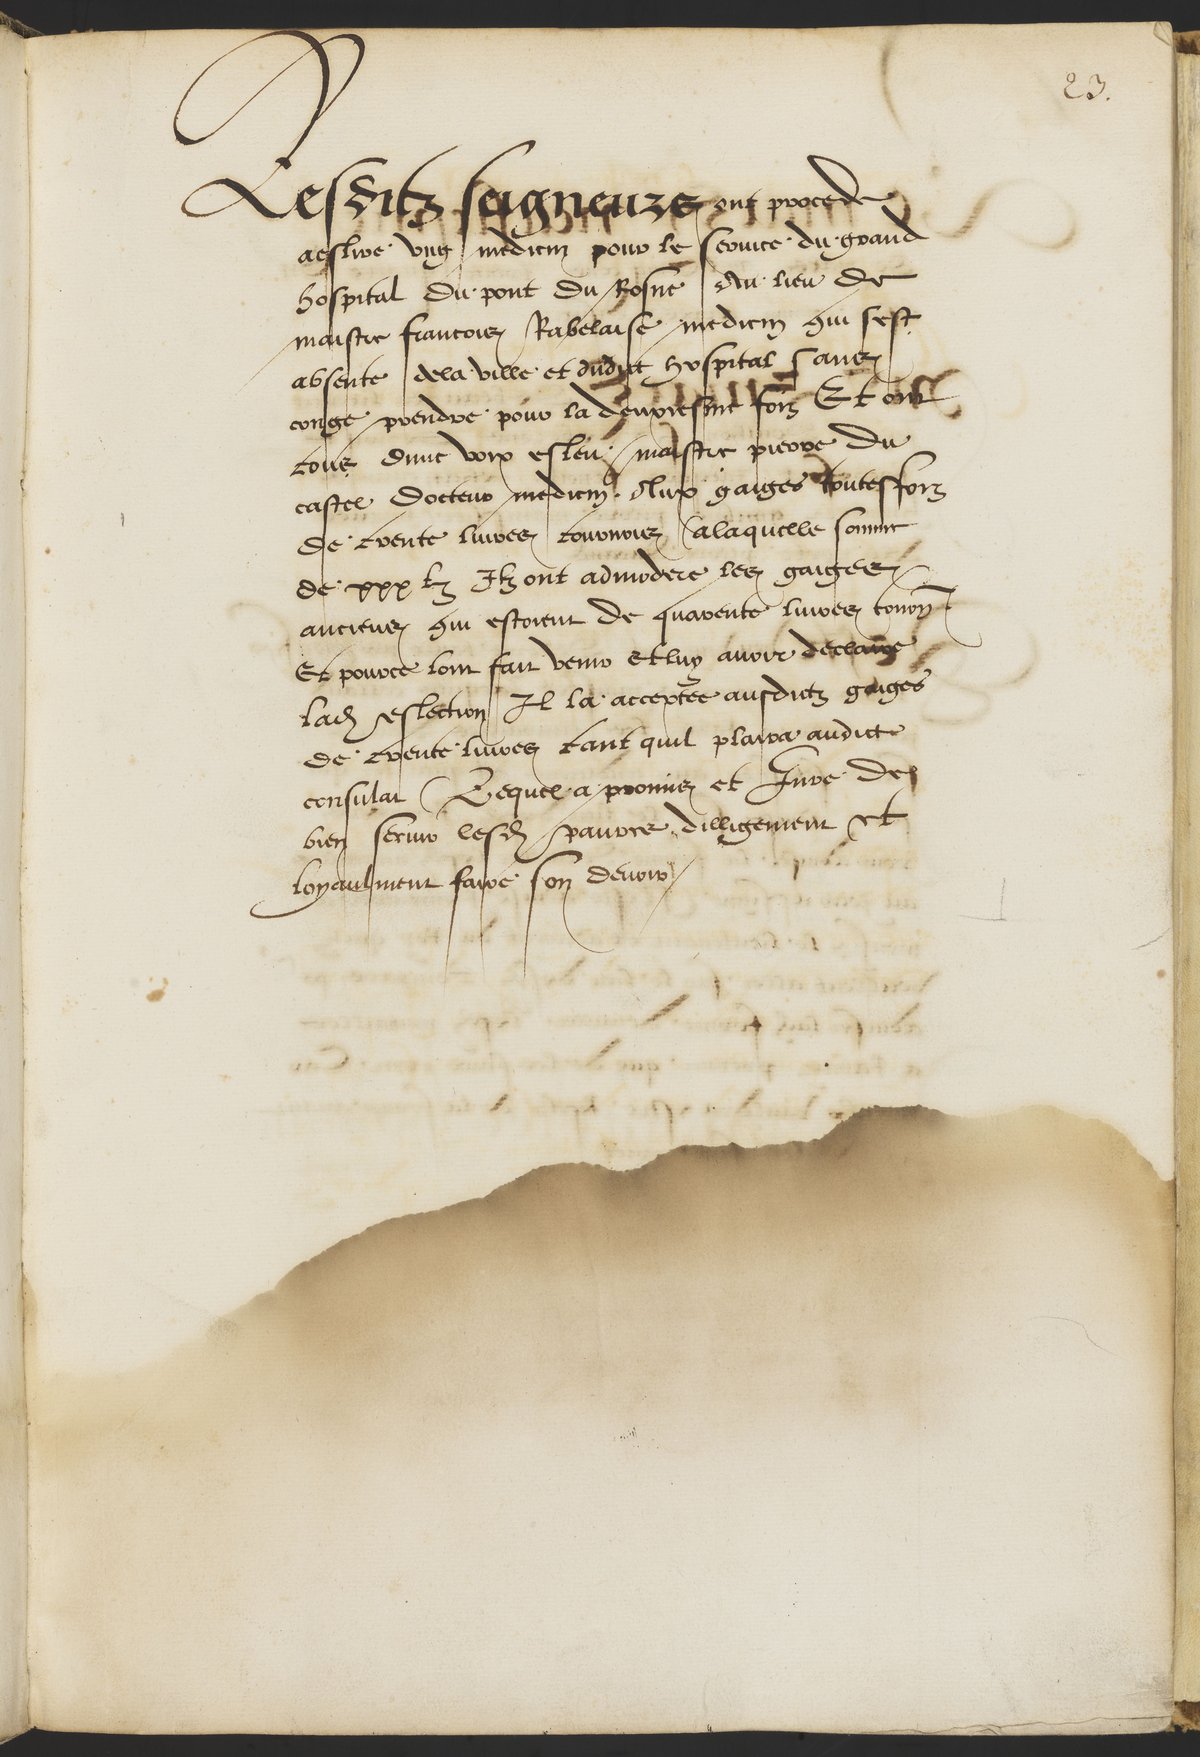 23.
Lesditz seigneurs ont procede
a eslire ung medecin pour le service du grand
hospital du pont du Rosne Au lieu de
maistre francois Rabelaise medecin qui sest
absente dela ville et dudict hospital sans
conge prendre pour la deuxiesme fois Et ont
tous dune voix esleu maistre pierre du
castel docteur medecin Aux gaiges toutesfois
de trente livres tournois alaquelle somme
de xxx lz Ilz ont admodere les gaiges
anciens qui estoient de quarente livres tourn
Et pource lont fait venir et luy avoir declaire
lad eslection Il la acceptee ausdictz gaiges
de trente livres tant quil plaira audict
consulat Lequel a promis et Jure de
bien servir lesd pauvres dilligement et
loyaulment faire son devoir